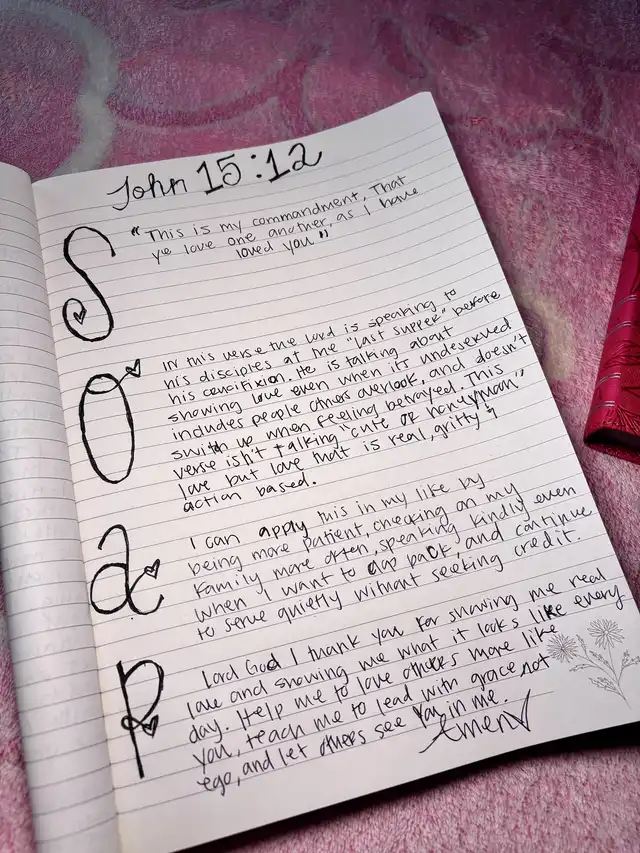 John 15:12
S
"This is my commandment, That
ye love one another, as I have
loved you"
O
In this verse the Lord is speaking to
his disciples at the "last supper" before
his crucifixion. He is talking about
showing love even when its undeserved
includes people others overlook, and doesn't
switch up when feeling betrayed. This
verse isn't talking "cute or honeyman"
love but love that is real, gritty,
action based.
a
I can apply this in my like by
being more patient, checking on my
family more often, speaking kindly even
when I want to clap back, and continue
to serve quietly without seeking credit.
P
Lord God I thank you for showing me real
love and showing me what it looks like every
day. Help me to love others more like
you, teach me to lead with grace not
ego, and let others see You in me.
Amen